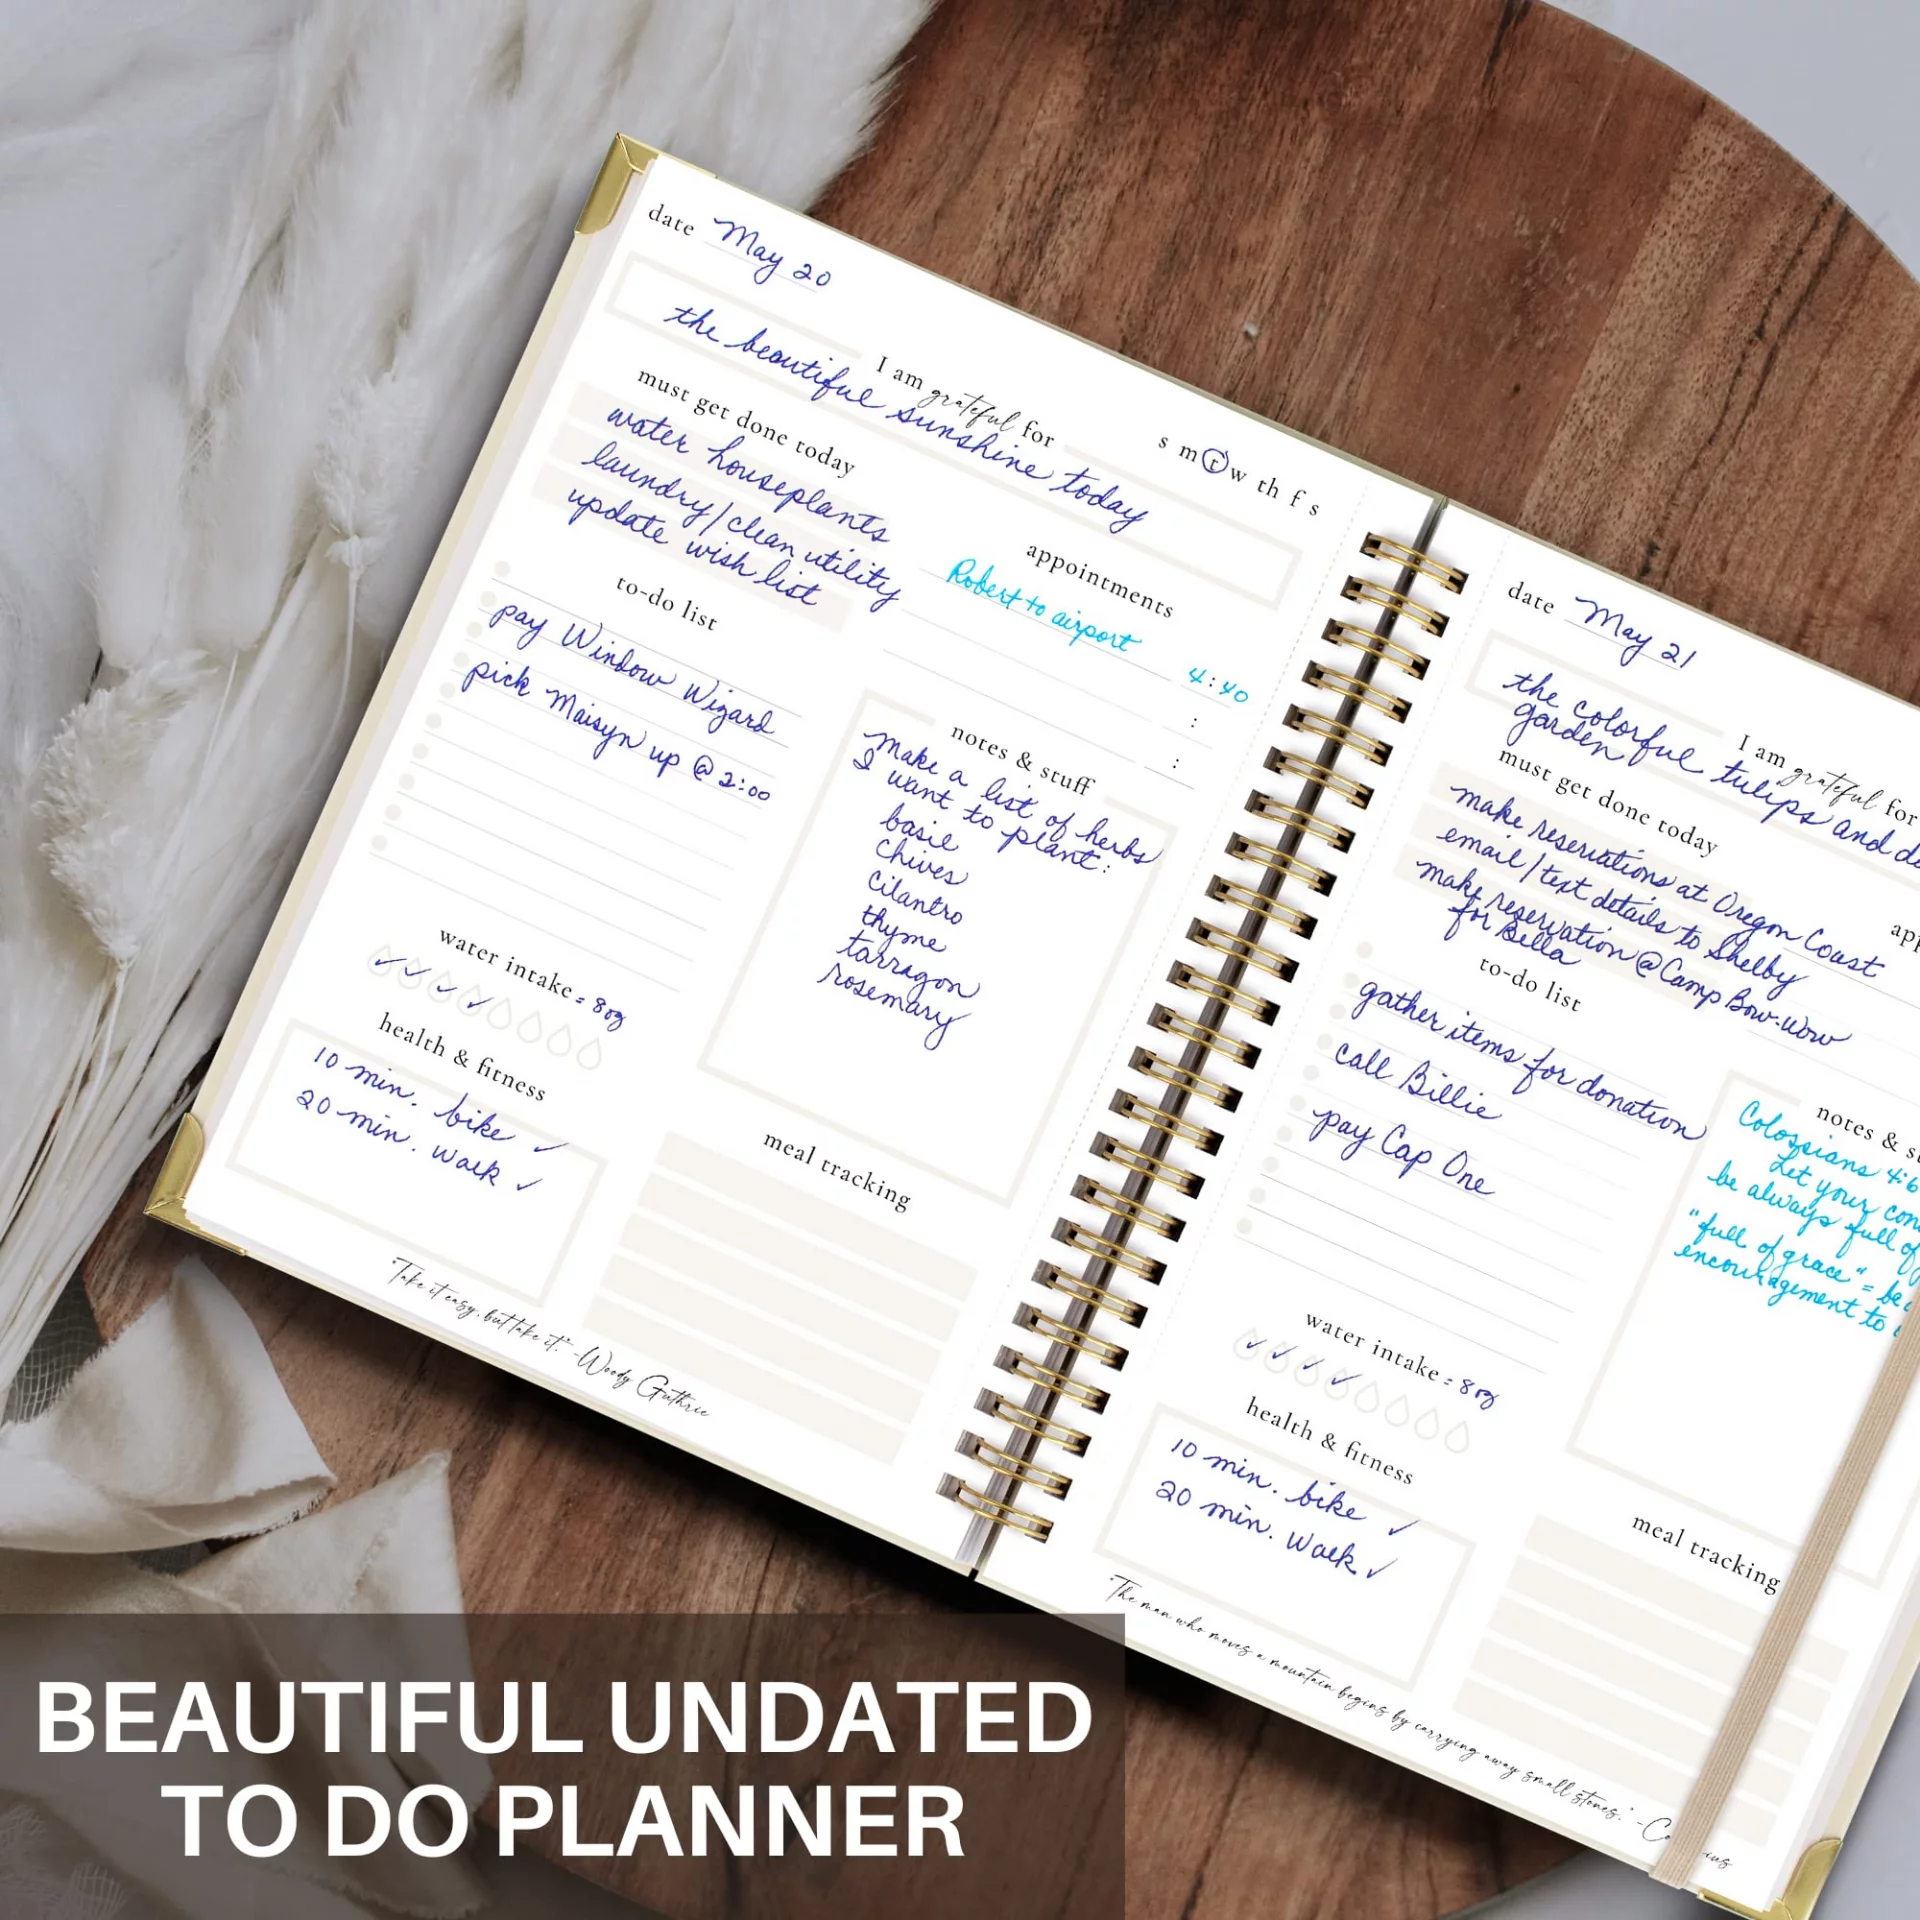 date May 20
I am grateful for
s m t w th f s
the beautiful sunshine today
must get done today
water houseplants
laundry/clean utility
update wish list
appointments
Robert to airport 4:40
:
:
to-do list
pay Window Wizard
pick Maisyn up @ 2:00
notes & stuff
make a list of herbs
I want to plant:
basil
chives
cilantro
thyme
tarragon
rosemary
water intake = 8oz
health & fitness
10 min. bike ✓
20 min. walk ✓
meal tracking
"Take it easy, but take it." -Woody Guthrie
date May 21
I am grateful for
the colorful tulips and
garden
must get done today
make reservations at Oregon Coast
email/text details to Shelby
make reservation @ Camp Bow-wow
for Bella
app
to-do list
gather items for donation
call Billie
pay Cap One
notes & s
Colossians 4:6
Let your con
be always full of
"full of grace" = be
encouragement to
water intake = 8oz
health & fitness
10 min. bike ✓
20 min. walk ✓
meal tracking
"The man who moves a mountain begins by carrying away small stones." -Co
BEAUTIFUL UNDATED
TO DO PLANNER